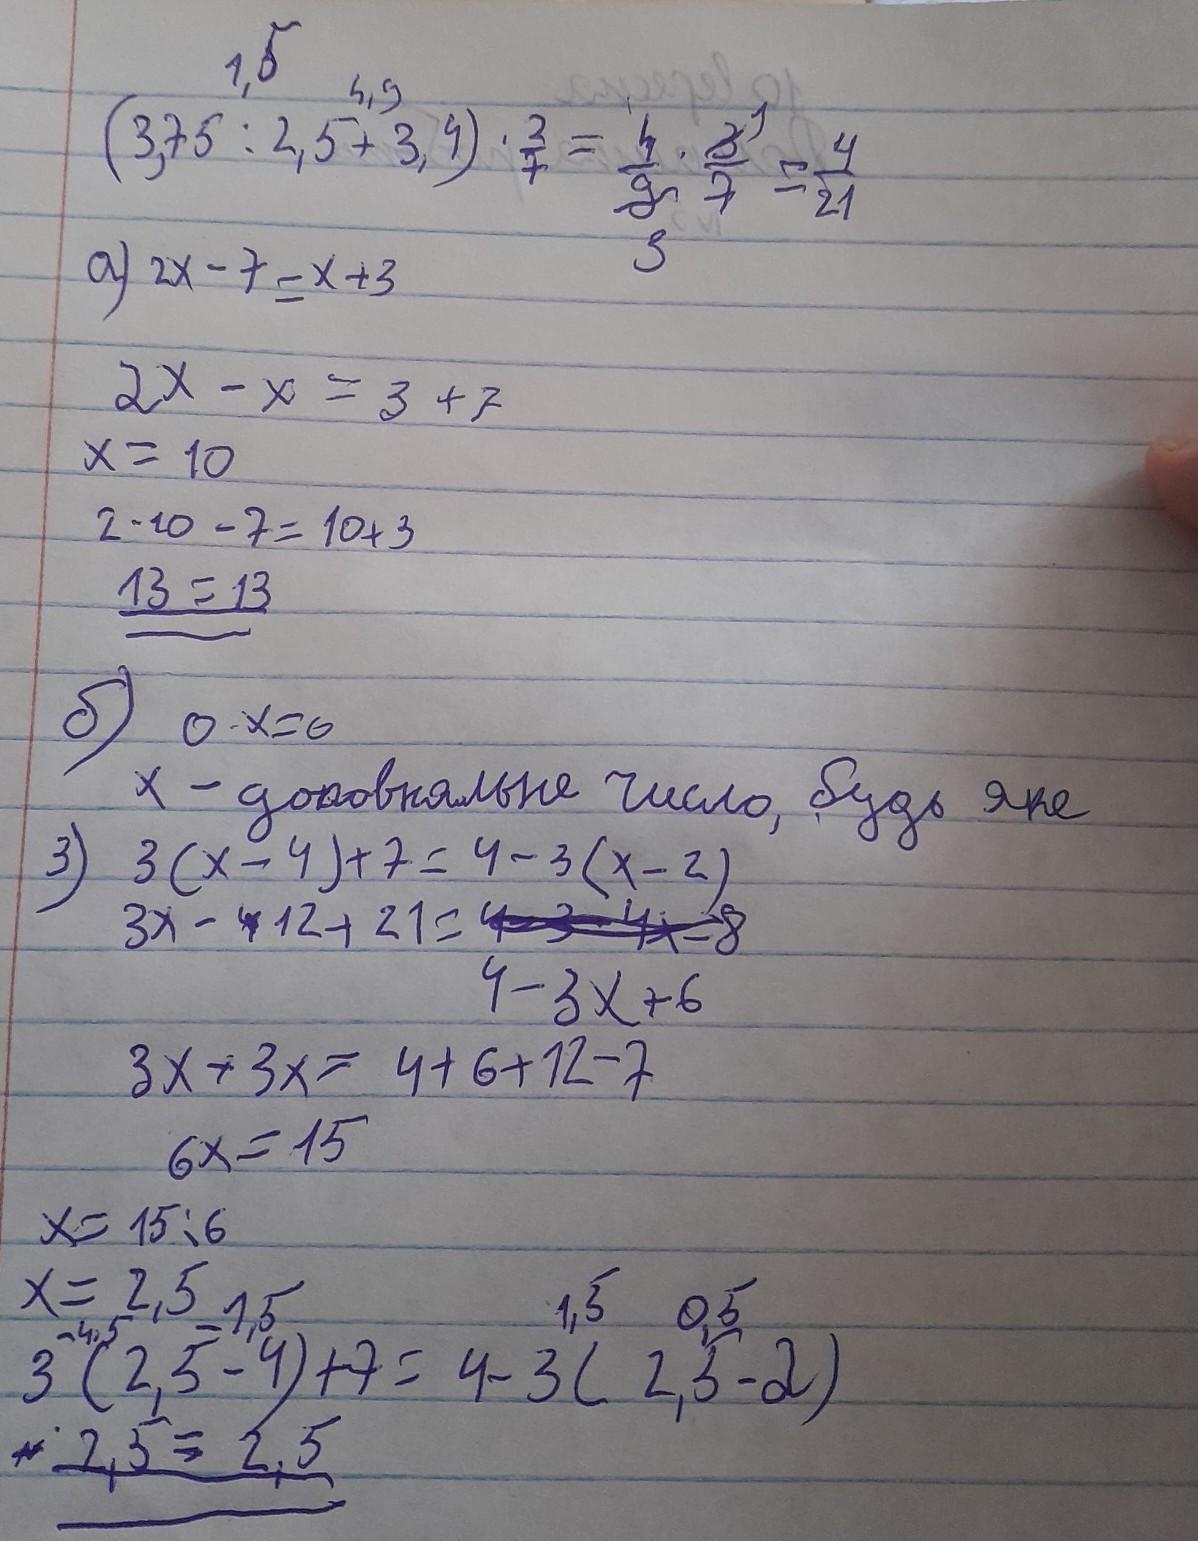 1,5
4,9
(3,75 : 2,5 + 3,4) · 3/7 = 4/9 · 3/7 = 4/21
1
3
а) 2x - 7 = x + 3
2x - x = 3 + 7
x = 10
2 · 10 - 7 = 10 + 3
13 = 13
б) 0 · x = 0
x - число, будь яке
3) 3(x - 4) + 7 = 4 - 3(x - 2)
3x - 12 + 21 =
4 - 3x + 6
3x + 3x = 4 + 6 + 12 - 7
6x = 15
x = 15 : 6
x = 2,5
-4,5 -1,5 1,5 0,5
3 (2,5 - 4) + 7 = 4 - 3( 2,5 - 2)
2,5 = 2,5